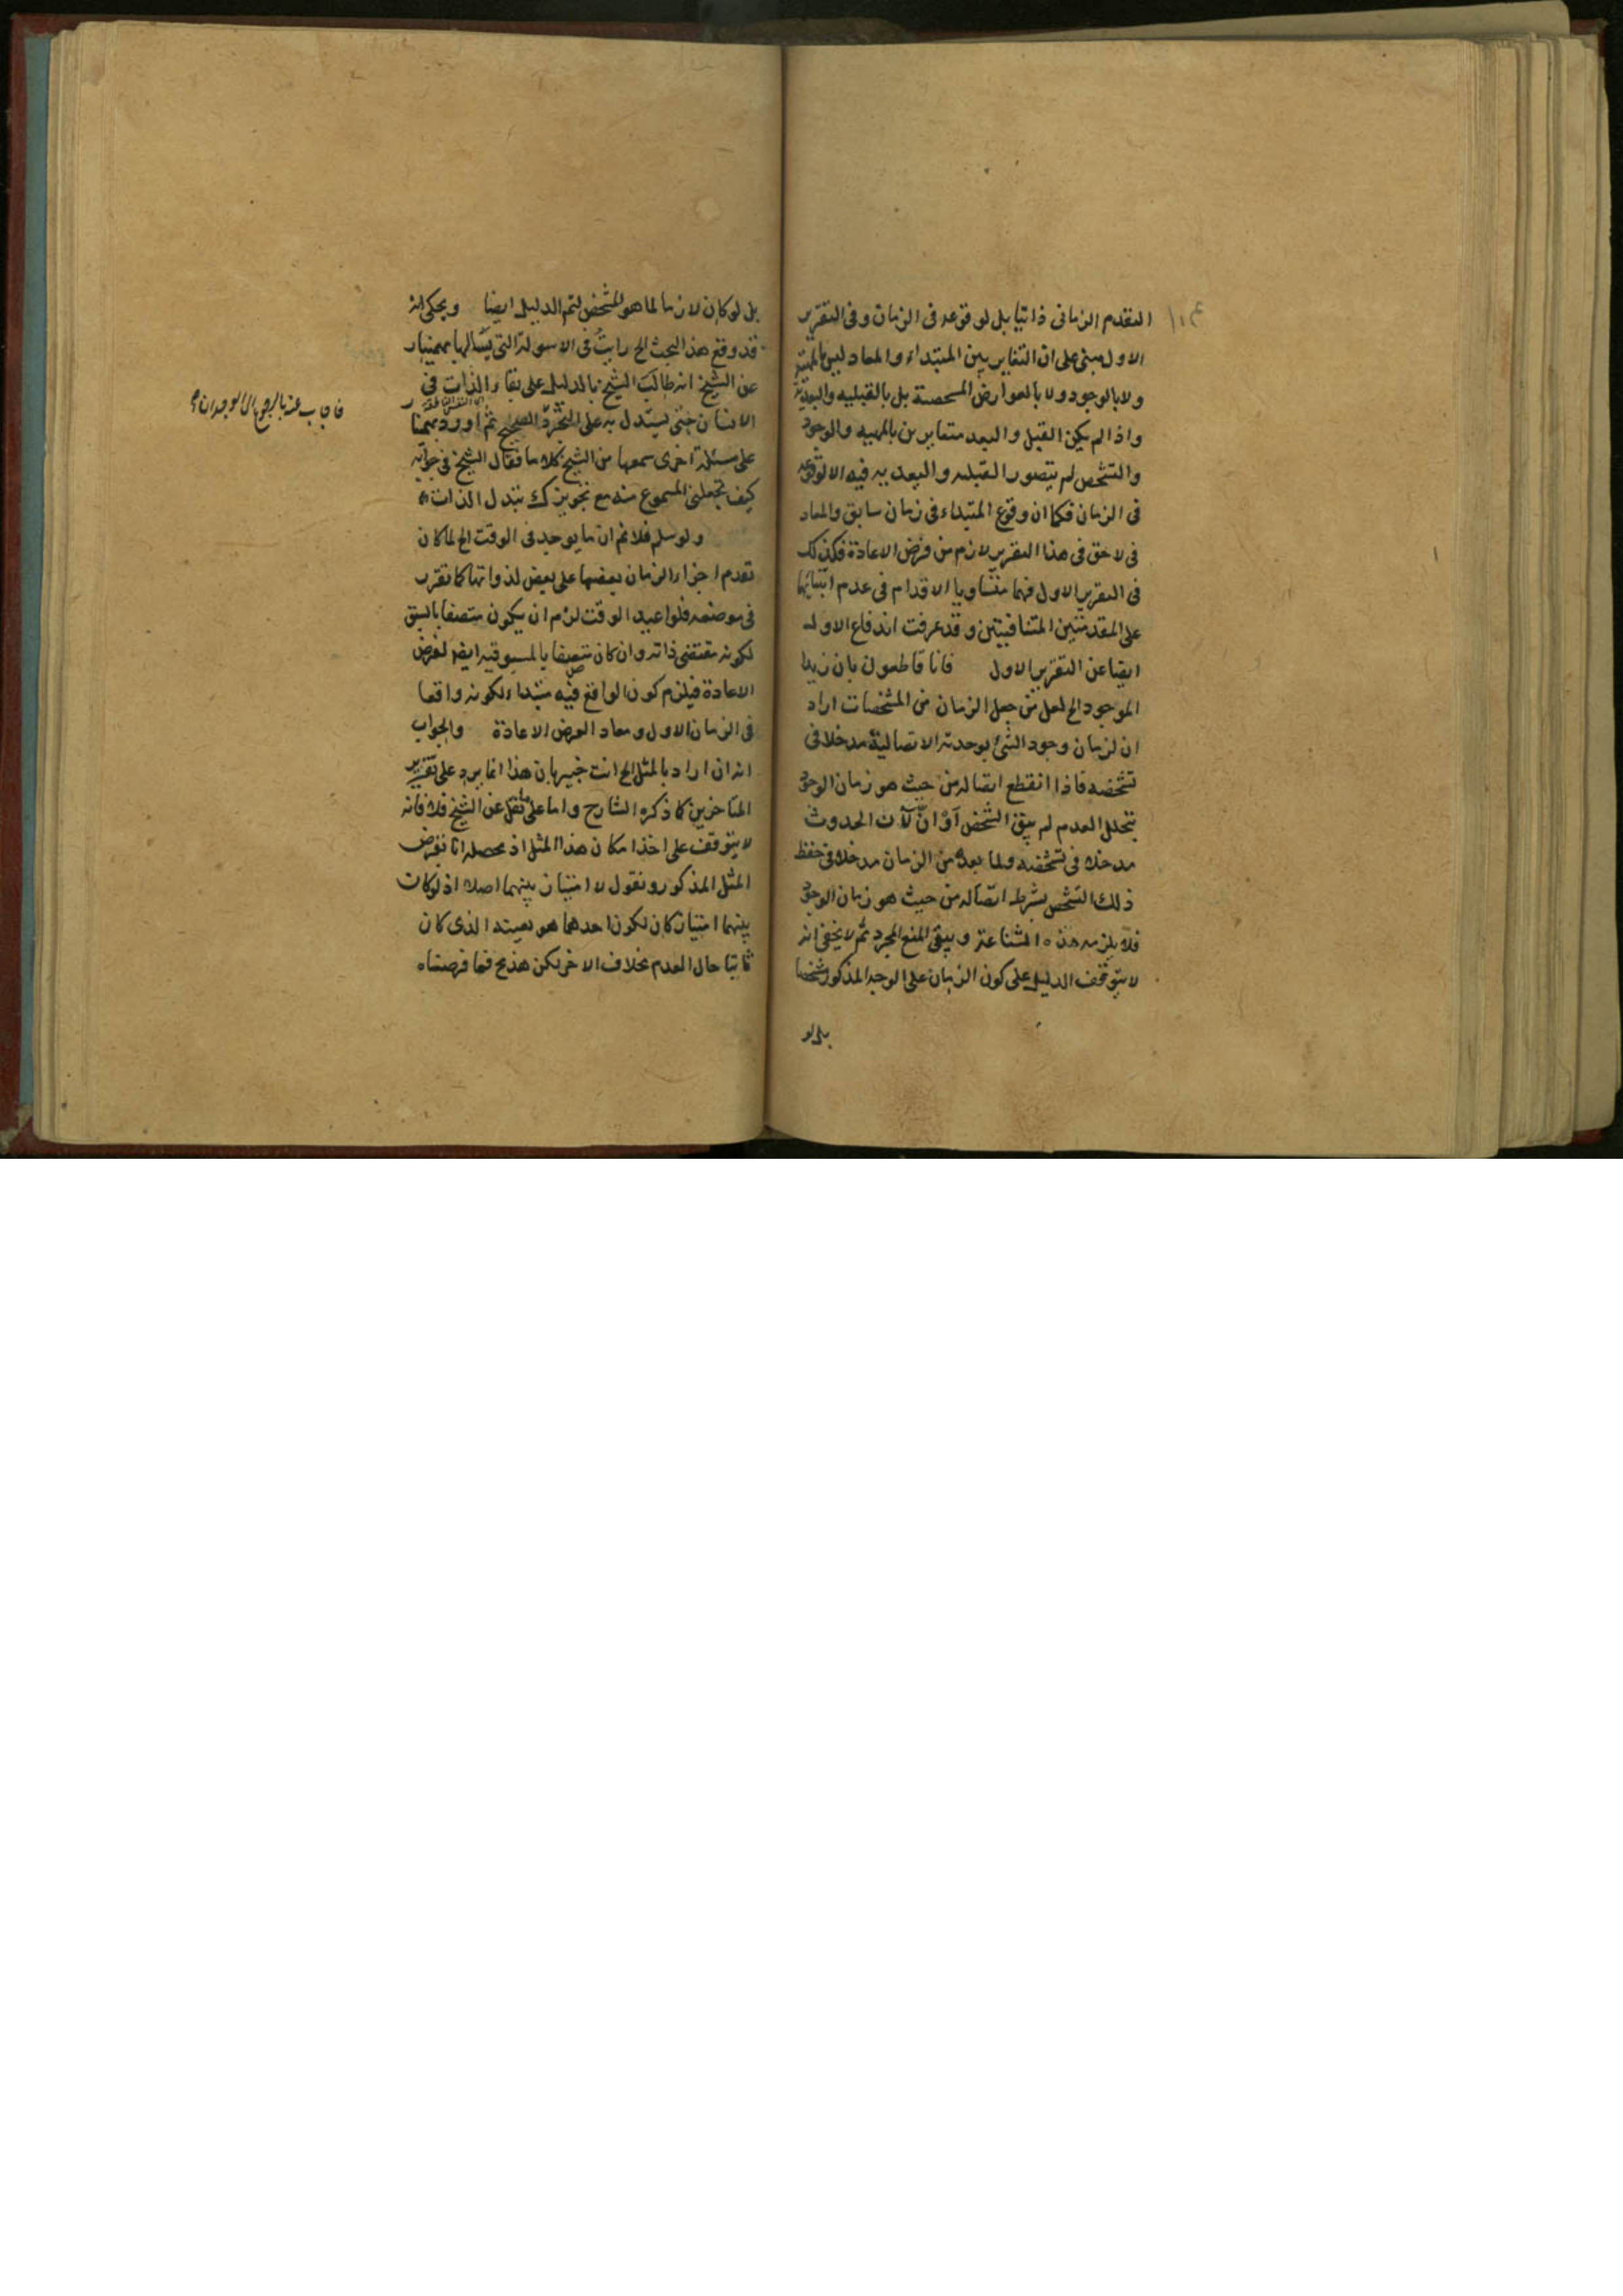 التقدم الزمانى ذاتيا بل لوقوعه فى الزمان وفى التقرير
الاول مبنى على ان التغاير بين المبتداء والمعاد ليس بالمهية
ولا بالوجود ولا بالعوارض المشخصة بل بالقبلية والبعدية
واذا لم يكن القبل والبعد متغايرين بالمهية والوجود
والتشخص لم يتصور القبلية والبعدية فيه الا لوقوعه
فى الزمان فكما ان وقوع المبتداء فى زمان سابق والمعاد
فى لاحق فى هذا التقرير لازم من فرض الاعادة فكذلك
فى التقرير الاول فهما متساويا الاقدام فى عدم ابتنائهما
على المقدمتين المتنافيتين وقد عرفت اندفاع الاول
ايضا عن التقرير الاول فانا قاطعون بان زيدا
الموجود الخ لعل من جعل الزمان من المشخصات اراد
ان لزمان وجود الشئ بوحدته الاتصالية مدخلا فى
تشخصه فاذا انقطع اتصاله من حيث هو زمان الوجود
بتخلل العدم لم يبق الشخص او ان لآن الحدوث
مدخلا فى تشخصه ولما بعده من الزمان مدخلا فى حفظ
ذلك التشخص بشرط اتصاله من حيث هو زمان الوجود
فلا يلزمه هذه الشناعة ويبقى المنع المجرد ثم لا يخفى انه
لا يتوقف الدليل على كون الزمان على الوجه المذكور مشخصا
بل لو
بل لو كان لازما لما هو المشخص لتم الدليل ايضا ويحكى انه
قد وقع هذا البحث الخ رايت فى الاسولة التى يسألها بهمنيار
عن الشيخ انه طالب الشيخ بالدليل على بقاء الذات فى
الانسان حتى يستدل به على التجرد الصحيح ثم اورد بهمنيار
على مسئلة اخرى سمعها من الشيخ كلاما فقال الشيخ فى جوابه
كيف تجعلنى المسموع منه مع تجويزك تبدل الذات
ولو سلم فلا نم ان ما يوجد فى الوقت الخ لما كان
تقدم اجزاء الزمان بعضها على بعض لذواتها كما تقرر
فى موضعه فلو اعيد الوقت لزم ان يكون متصفا بالسبق
لكونه مقتضى ذاته وان كان متصفا بالمسبوقية ايضا لفرض
الاعادة فيلزم كون الواقع فيه مبتداء لكونه واقعا
فى الزمان الاول ومعادا لفرض الاعادة والجواب
انه ان اراد بالمثل الخ انت خبير بان هذا انما يرد على تقرير
المتاخرين كما ذكره الشارح واما على ما نقل عن الشيخ فلا فانه
لا يتوقف على اخذ امكان هذا المثل اذ محصله انا نفرض
المثل المذكور ونقول لا امتياز بينهما اصلا اذ لو كان
بينهما امتياز كان لكون احدهما هو بعينه الذى كان
ثابتا حال العدم بخلاف الاخر لكن هذيح فما فرضناه
فاجاب عنه بالرجوع الى الوجدان